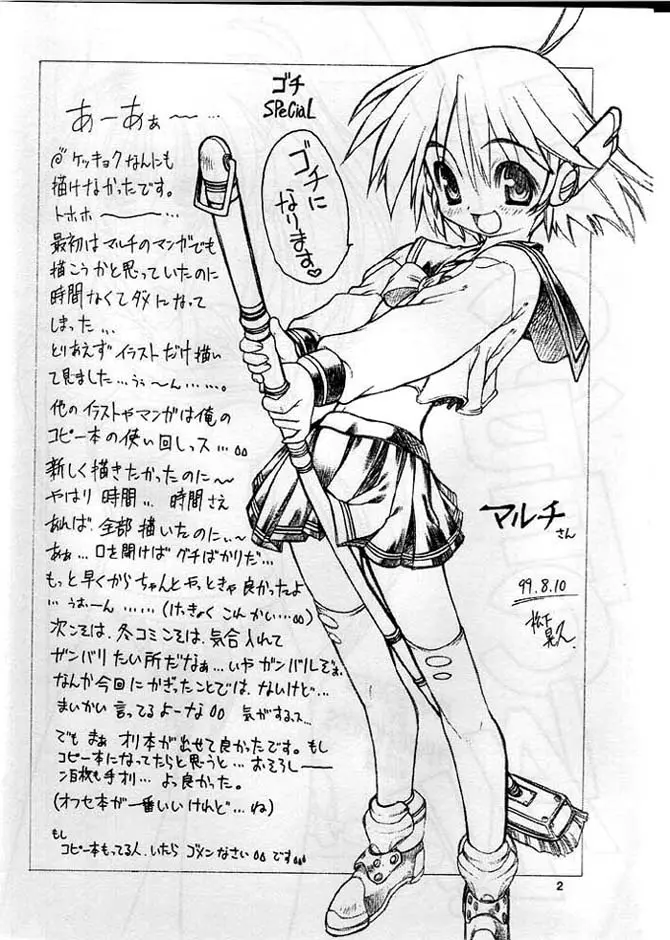 ゴチ
SPeCiaL
あーあぁ〜…
ケッキョクなんにも
描けなかったです。
トホホ〜〜…
最初はマルチのマンガでも
描こうかと思っていたのに
時間なくてダメになって
しまった…
とりあえずイラストだけ描い
て見ました…うぅ〜ん……。
他のイラストやマンガは俺の
コピー本の使い回しっス…
新しく描きたかったのに〜
やはり時間… 時間さえ
あれば、全部描いたのにぃ〜
あぁ…口を開けばグチばかりだ…
もっと早くからちゃんとやっときゃ良かったよ
…うぉーん……(けっきょくこんかい…)
次こそは、冬コミこそは、気合入れて
ガンバりたい所だなぁ…いやガンバルぞぉ、
なんか今回にかぎったことでは、ないけど…
まいかい言ってるよーな 気がするっス…
でもまぁオリ本が出せて良かったです。もし
コピー本になってたらと思うと…おそろしー
ン百枚も手オリ…よっ良かった。
(オフセ本が一番いいけれど…ね)
もし
コピー本もってる人、いたらゴメンなさい です…
ゴチに
なります♡
マルチさん
99.8.10
2